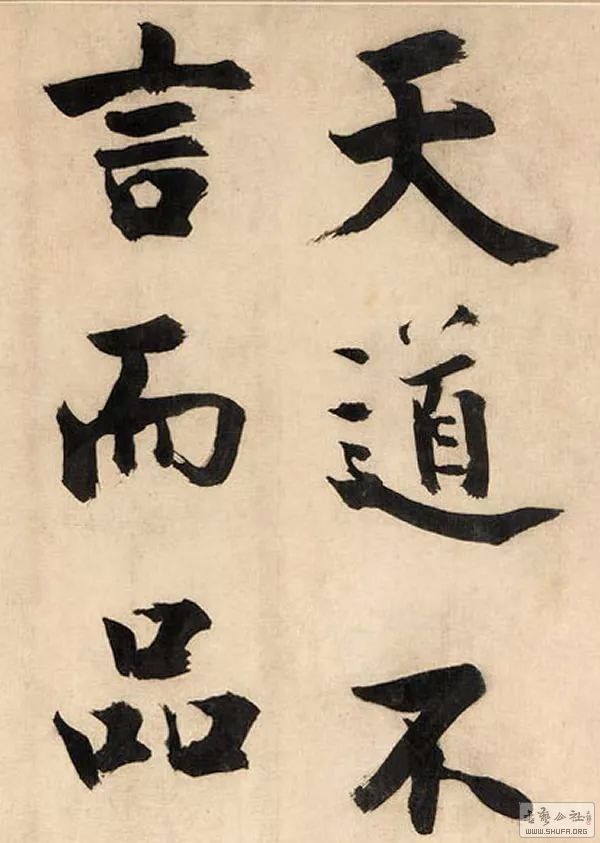 天道不
言而品
WWW.SHUFA.ORG